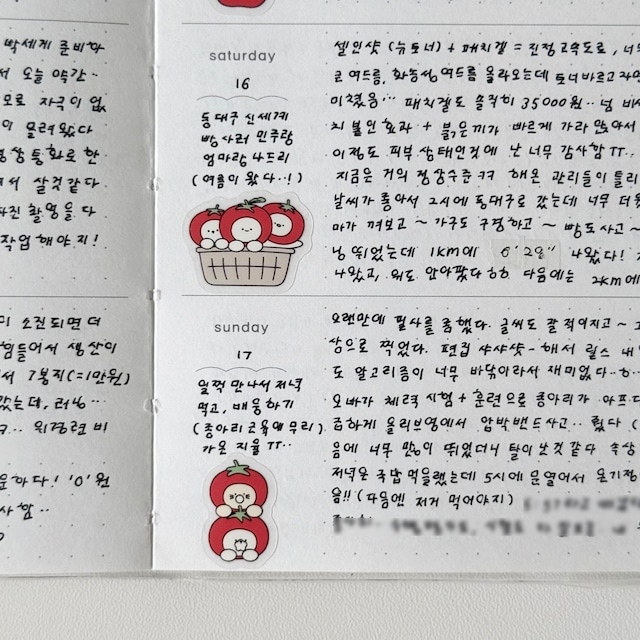 빡세게 준비하
서 오늘 약간..
모로 자극이 없
이 몰려왔다
영상 통화로 한
서 살것 같다
사진 촬영을 다
작업 해야지!
이 소진되면 더
힘들어서 생산이
서 7봉지(=1만원)
갔는데, 러닝..
saturday
16
동대구 신세계
빵사러 민주랑
엄마랑 나드리
(여름이 왔다..!)
셀인샷 (뉴토너) + 패치겔 = 진정 고속도로, 너무
코 여드름, 화농성 여드름 올라오는데 토너바르고
미쳤음... 패치겔도 솔직히 35000원.. 넘 비싸
치 붙인 효과 + 붉은끼가 빠르게 가라앉아서
이정도 피부 상태인것에 난 너무 감사함 ㅠㅠ..
지금은 거의 정상수준 ㅋㅋ 해온 관리들이 틀리
날씨가 좋아서 2시에 동대구로 갔는데 너무 더웠
마가 껴보고 ~ 가구도 구경하고 ~ 빵도 사고 ~
닝 뛰었는데 1KM에 6'28" 나왔다!
나왔고, 의도 안아팠다 ㅎㅎ 다음에는 2KM에
sunday
17
일찍 만나서 저녁
먹고, 배웅하기
(종아리 근육에 무리)
가온 지율 ㅠㅠ..
오랜만에 필사를 좀 했다. 글씨도 잘 적어지고 ~
상으로 찍었다. 편집 샤샤샷- 해서 릴스
도 알고리즘이 너무 바닥이라서 재미없다..
오빠가 체력 시험 + 훈련으로 종아리가 아프다
급하게 올리브영에서 압박밴드사고.. 줬다
음에 너무 많이 뛰었더니 탈이 난것 같다 속상
저녁은 국밥 먹을랬는데 5시에 문열어서 옮기
음!! (다음엔 저거 먹어야지)